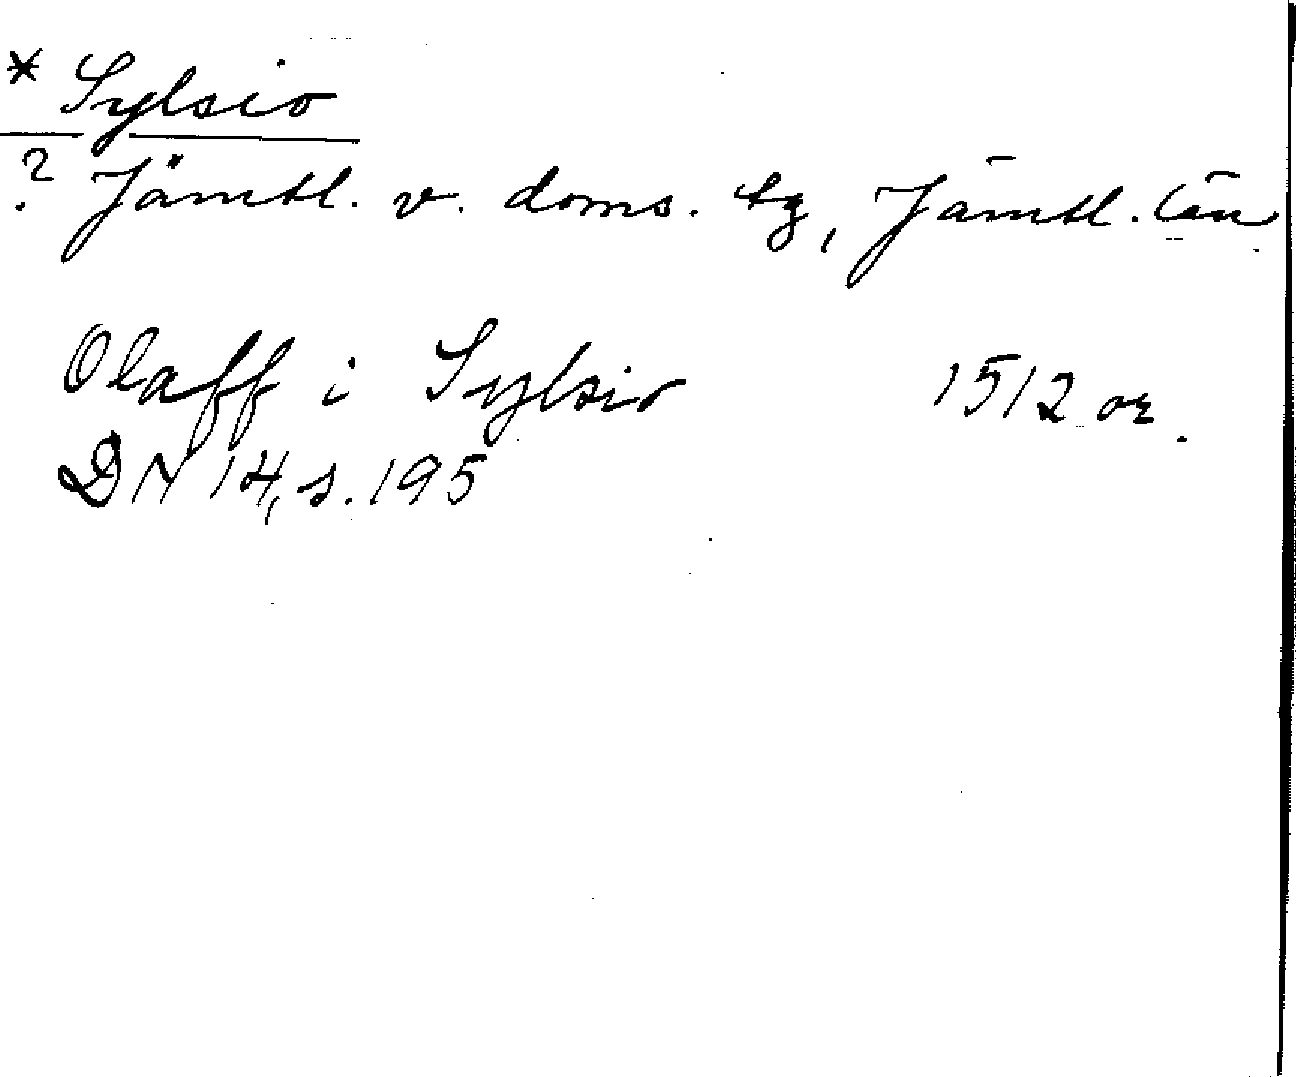 * Sylsio
? Jämtl. v. doms. tg, Jämtl. län
Olaff i Sylsio 1512 or.
DN 14, s. 195